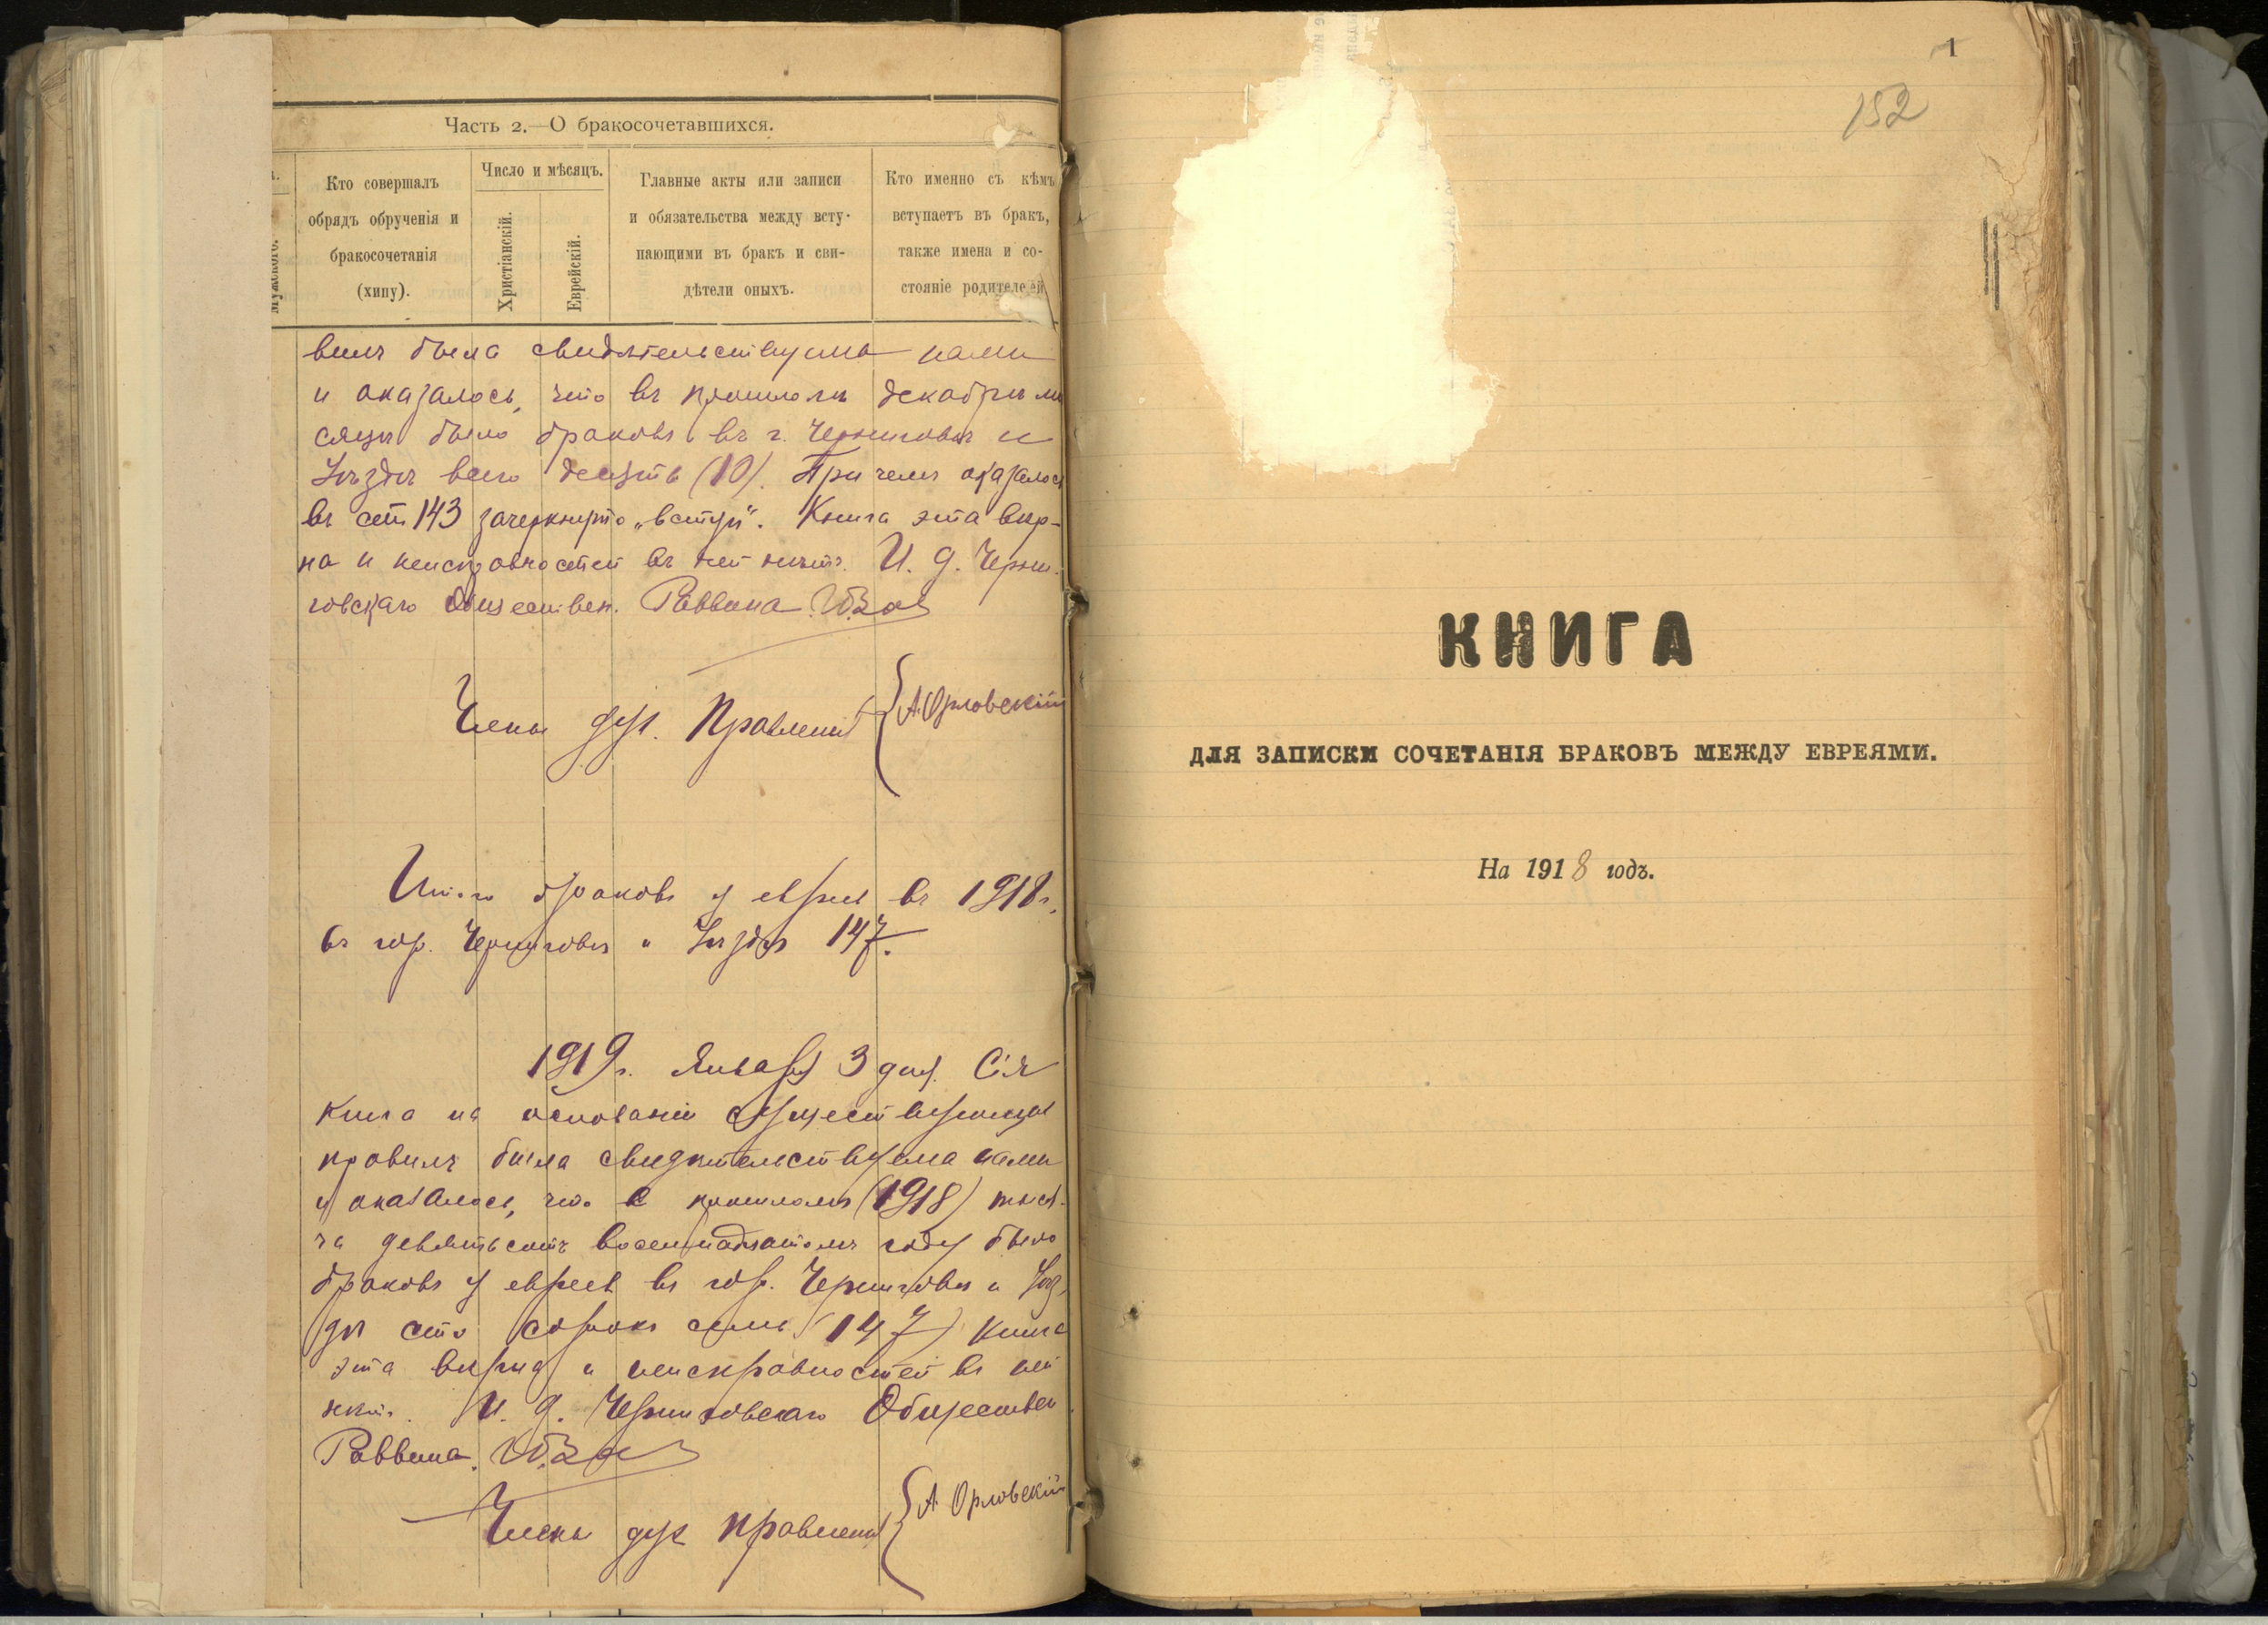 Часть 2.—О бракосочетавшихся.
Мужского.
Кто совершалъ
обрядъ обрученія и
бракосочетанія
(хипу).
Число и мѣсяцъ.
Христіанскій.
Еврейскій.
Главные акты или записи
и обязательства между всту-
пающими въ бракъ и сви-
дѣтели оныхъ.
Кто именно съ кѣмъ
вступаетъ въ бракъ,
также имена и со-
стояніе родителей
вилъ была свидѣтельствуема нами
и оказалось, что въ прошломъ декабрѣ мѣ
сяцѣ было браковъ въ г. Черниговѣ и
Уѣздѣ всего десять (10). При чемъ оказалось
въ ст. 143 зачеркнуто „вступ“. Книга эта вѣр-
на и неисправностей въ ней нѣтъ. И. д. Черни-
говскаго Обществен. Раввина
Члены дух. Правленія { А. Орловскій
Итого браковъ у евреев въ 1918 г.
въ гор. Черниговѣ и Уѣздѣ 147.
1919 г. Января 3 дня. Сія
книга на основаніи существующихъ
правилъ была свидѣтельствуема нами
и оказалось, что в прошломъ (1918) тыся-
ча девятьсотъ восемнадцатомъ году было
браковъ у евреев въ гор. Черниговѣ и Уѣз-
дѣ сто сорокъ семь (147) Книга
эта вѣрна и неисправностей въ ней
нѣтъ. И. д. Черниговскаго Обществен.
Раввина.
Члены дух правленія { А. Орловскій
1
152
КНИГА
ДЛЯ ЗАПИСКИ СОЧЕТАНІЯ БРАКОВЪ МЕЖДУ ЕВРЕЯМИ.
На 1918 годъ.